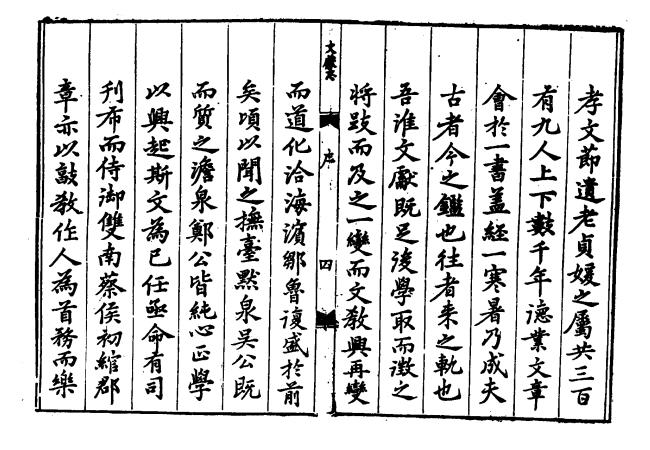 孝文節遺老貞媛之屬共三百
有九人上下數千年德業文章
會於一書蓋經一寒暑乃成夫
古者今之鑑也往者来之軌也
吾淮文獻既足後學取而徵之
將跂而及之一變而文教興再變
文獻志
序
四
而道化洽海濵鄒魯復盛於前
矣頃以聞之撫臺黙泉吳公既
而質之澹泉鄭公皆純心正學
以興起斯文為已任亟命有司
刋布而侍御雙南蔡侯初綰郡
章亦以敼教作人為首務而樂